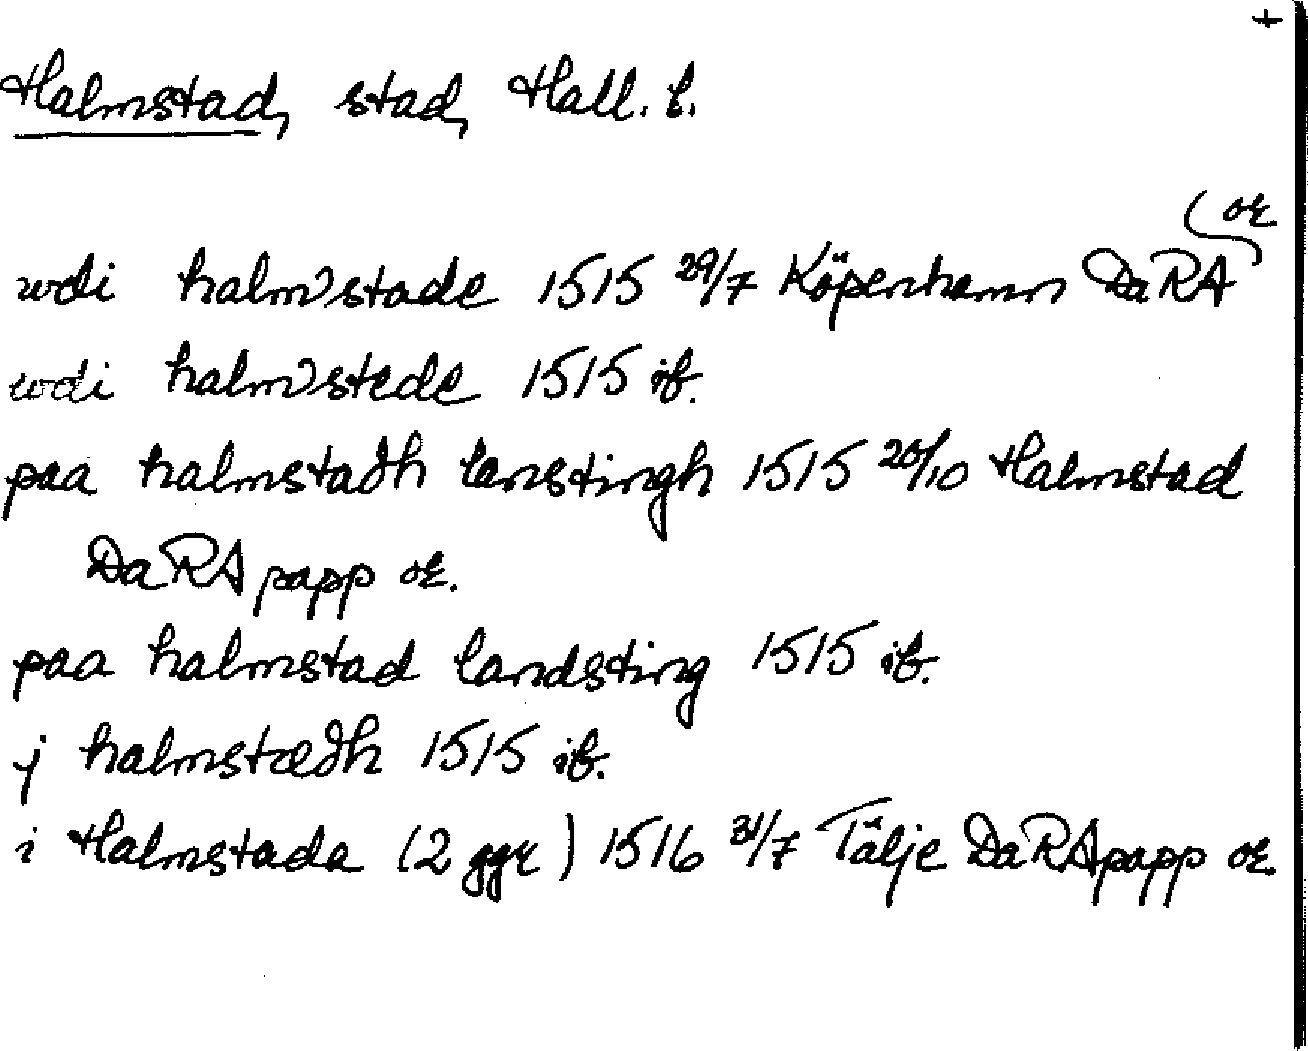 +
Halmstad, stad, Hall. l.
or.
wdi halmstade 1515 29/7 Köpenhamn DaRA
wdi halmstede 1515 ib.
paa halmstadh lanstingh 1515 20/10 Halmstad
DaRA papp or.
paa halmstad landsting 1515 ib.
j halmstædh 1515 ib.
i Halmstada (2 ggr) 1516 31/7 Tälje DaRA papp or.